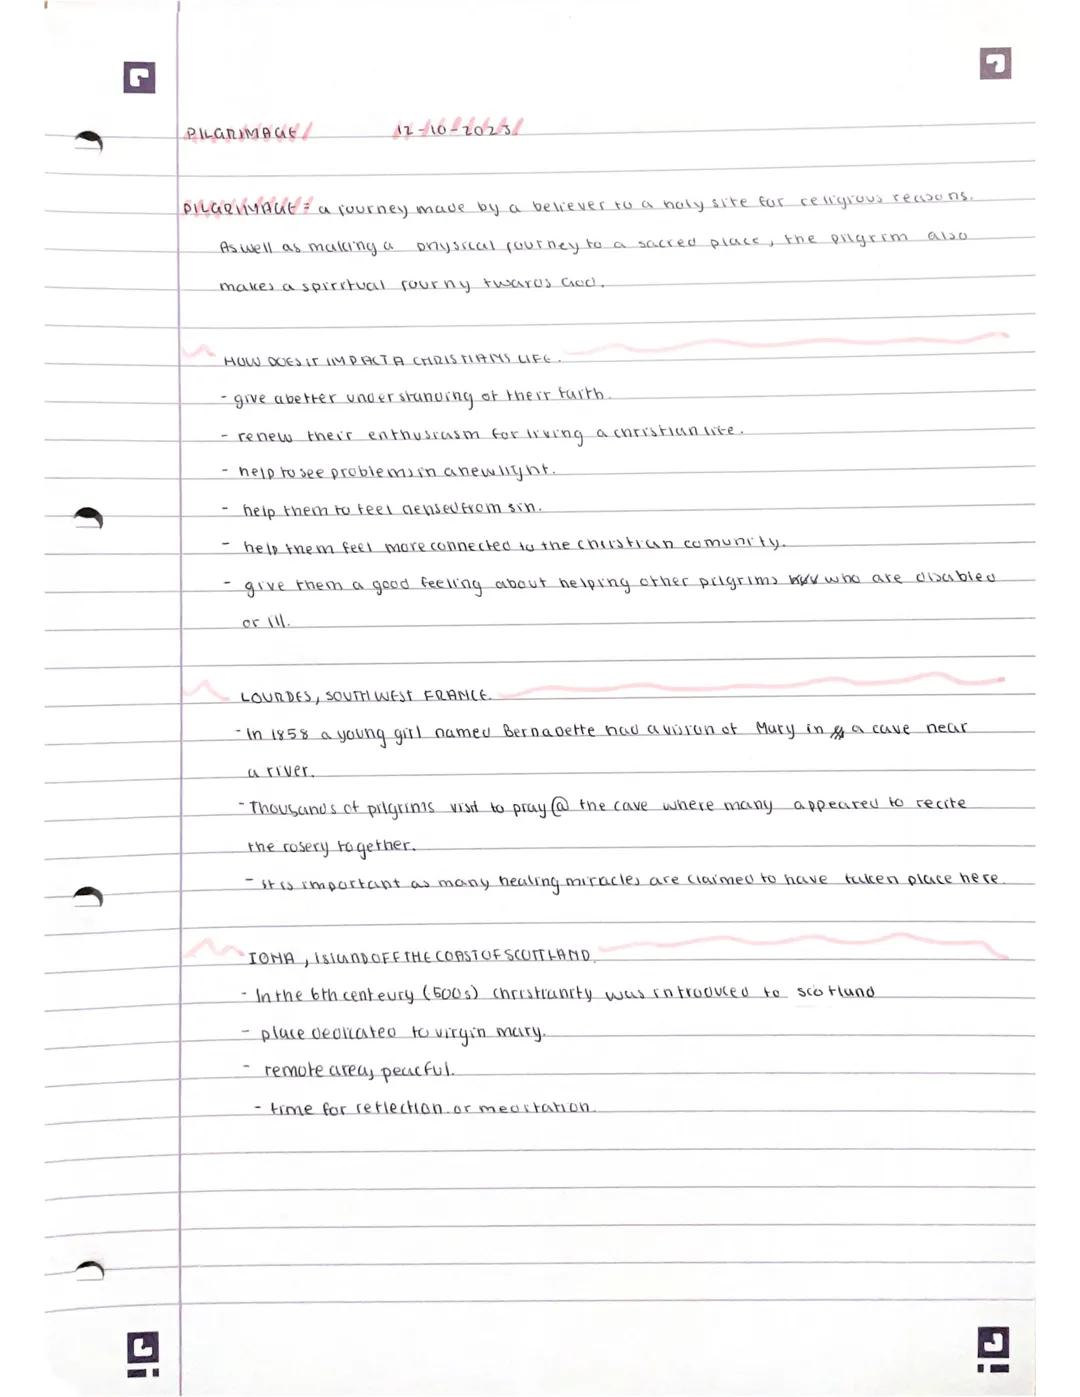 PILGRIMAGE 12-10-2023
PILGRIMAGE = a journey made by a believer to a holy site for religious reasons.
As well as making a physical journey to a sacred place, the pilgrim also
makes a spiritual journy twards God.
HOW DOES IT IMPACT A CHRISTIANS LIFE.
- give a better understanding of their faith.
- renew their enthusiasm for living a christian life.
- help to see problems in a new light.
- help them to feel clensed from sin.
- help them feel more connected to the christian comunity.
- give them a good feeling about helping other pilgrims who are disabled
or ill.
LOURDES, SOUTH WEST FRANCE.
- In 1858 a young girl named Bernadette had a vision of Mary in a cave near
a river.
- Thousands of pilgrims visit to pray @ the cave where many appeared to recite
the rosery together.
- It is important as many healing miracles are claimed to have taken place here.
IONA, ISLAND OFF THE COAST OF SCOTTLAND.
- In the 6th centeury (500s) christianity was introduced to scotland
- place dedicated to virgin mary.
- remote area, peacful.
- time for reflection or meditation.